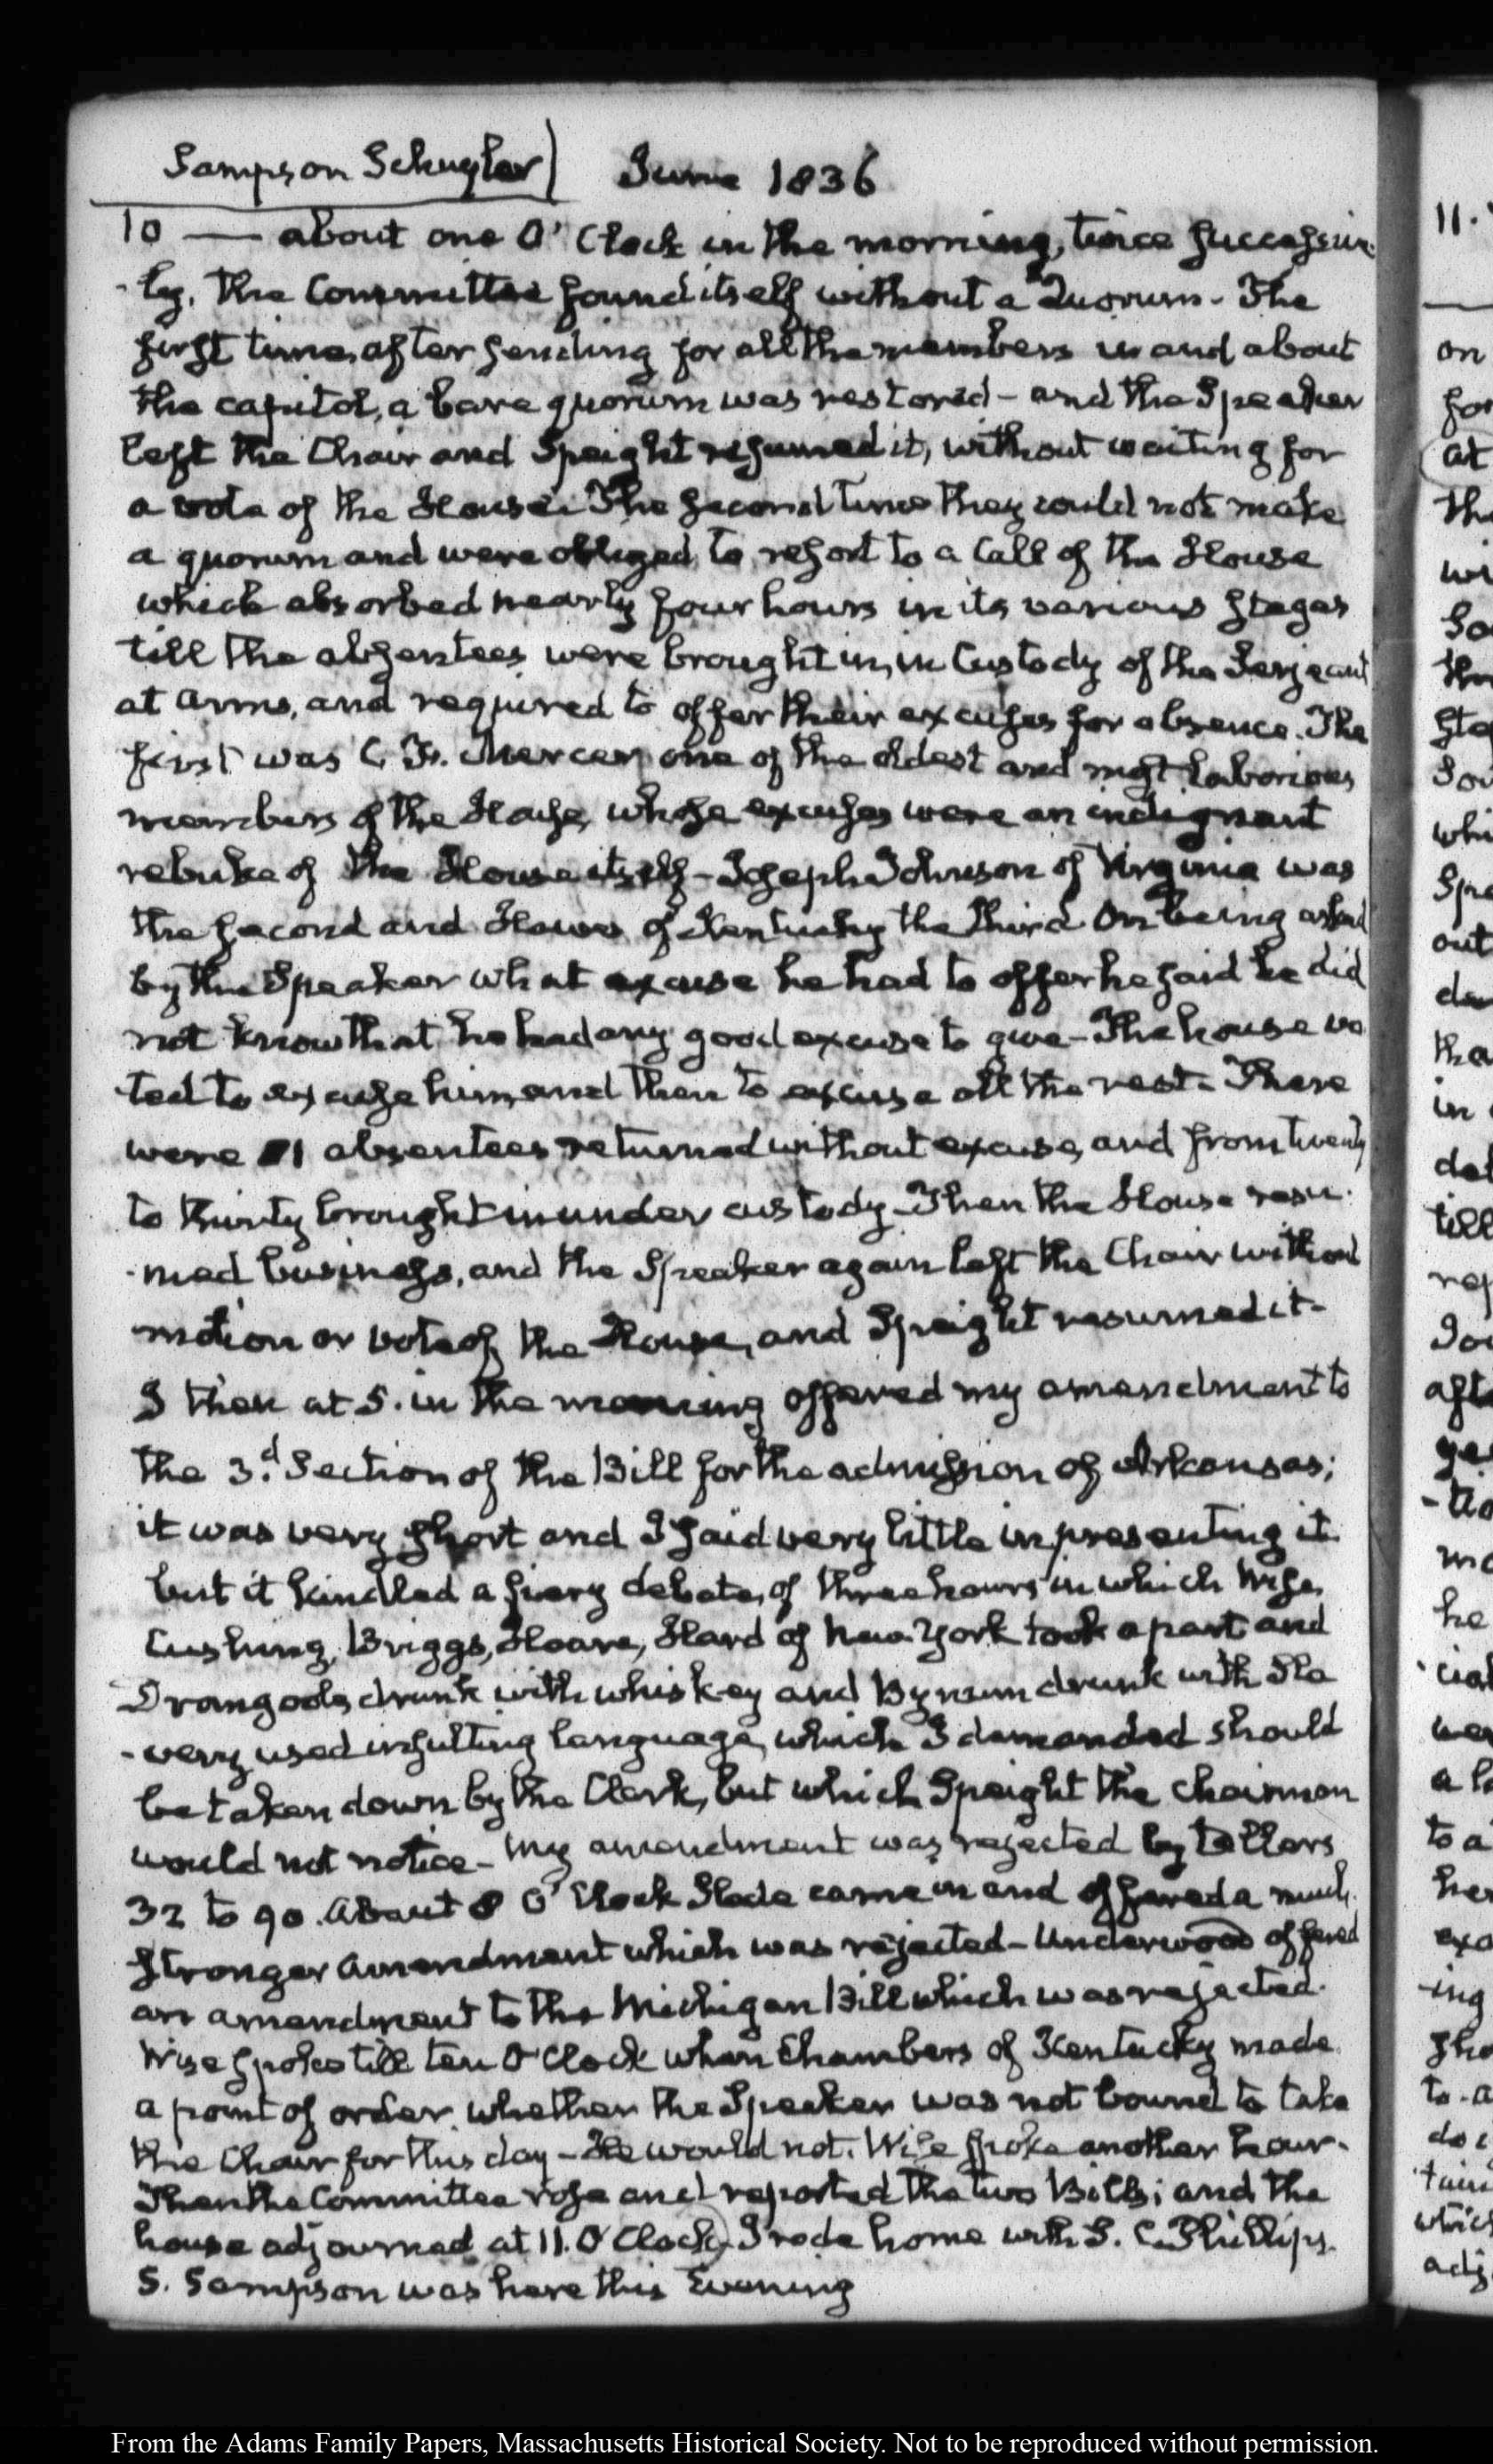 Sampson Schuyler) June 1836
10 — about one O' Clock in the morning, twice successive-
-ly, the Committee found itself without a Quorum - The
first time, after sending for all the members in and about
the capitol, a bare quorum was restored - and the Speaker
left the Chair and Speight resumed it, without waiting for
a vote of the House. The second time they could not make
a quorum and were obliged to resort to a Call of the House
which absorbed nearly four hours in its various stages
till the absentees were brought in, in Custody of the Serjeant
at arms, and required to offer their excuses for absence. The
first was C. F. Mercer, one of the oldest and most laborious
members of the House, whose excuses were an indignant
rebuke of the House itself - Joseph Johnson of Virginia was
the second and Hawes of Kentucky the third. On being asked
by the Speaker what excuse he had to offer he said he did
not know that he had any good excuse to give - The house vo
ted to excuse him, and then to excuse all the rest. There
were 81 absentees returned without excuse, and from twenty
to thirty brought in under custody - Then the House resu-
-med business, and the Speaker again left the Chair without
motion or vote of the House, and Speight resumed it -
I then at 5. in the morning offered my amendment to
the 3.d Section of the Bill for the admission of Arkansas;
it was very short and I said very little in presenting it
but it kindled a fiery debate, of three hours in which Wise,
Cushing, Briggs, Hoare, Hard of New York took a part and
Dromgoole, drunk with whiskey and Bynum drunk with sla
-very, used insulting language, which I demanded should
be taken down by the Clerk, but which Speight the Chairman
would not notice - My amendment was rejected by tellers
32 to 90. About 8 O' Clock Slade came in and offered a much
stronger amendment which was rejected - Underwood offered
an amendment to the Michigan Bill which was rejected.
Wise spoke till ten O'Clock when Chambers of Kentucky made
a point of order whether the Speaker was not bound to take
the Chair for this day - He would not. Wise spoke another hour.
Then the Committee rose and reported the two Bills; and the
house adjourned at 11. O'Clock. I rode home with S. C. Phillips.
S. Sampson was here this Evening
11.
on
for
at
th
wi
so
th
sta
Jou
whi
Spe
out
de
tha
in
del
till
rep
Jo
aft
ge
-tio
mo
he
cial
wer
a l
to a
her
exa
-ing
sho
to a
do
tain
which
adj
From the Adams Family Papers, Massachusetts Historical Society. Not to be reproduced without permission.